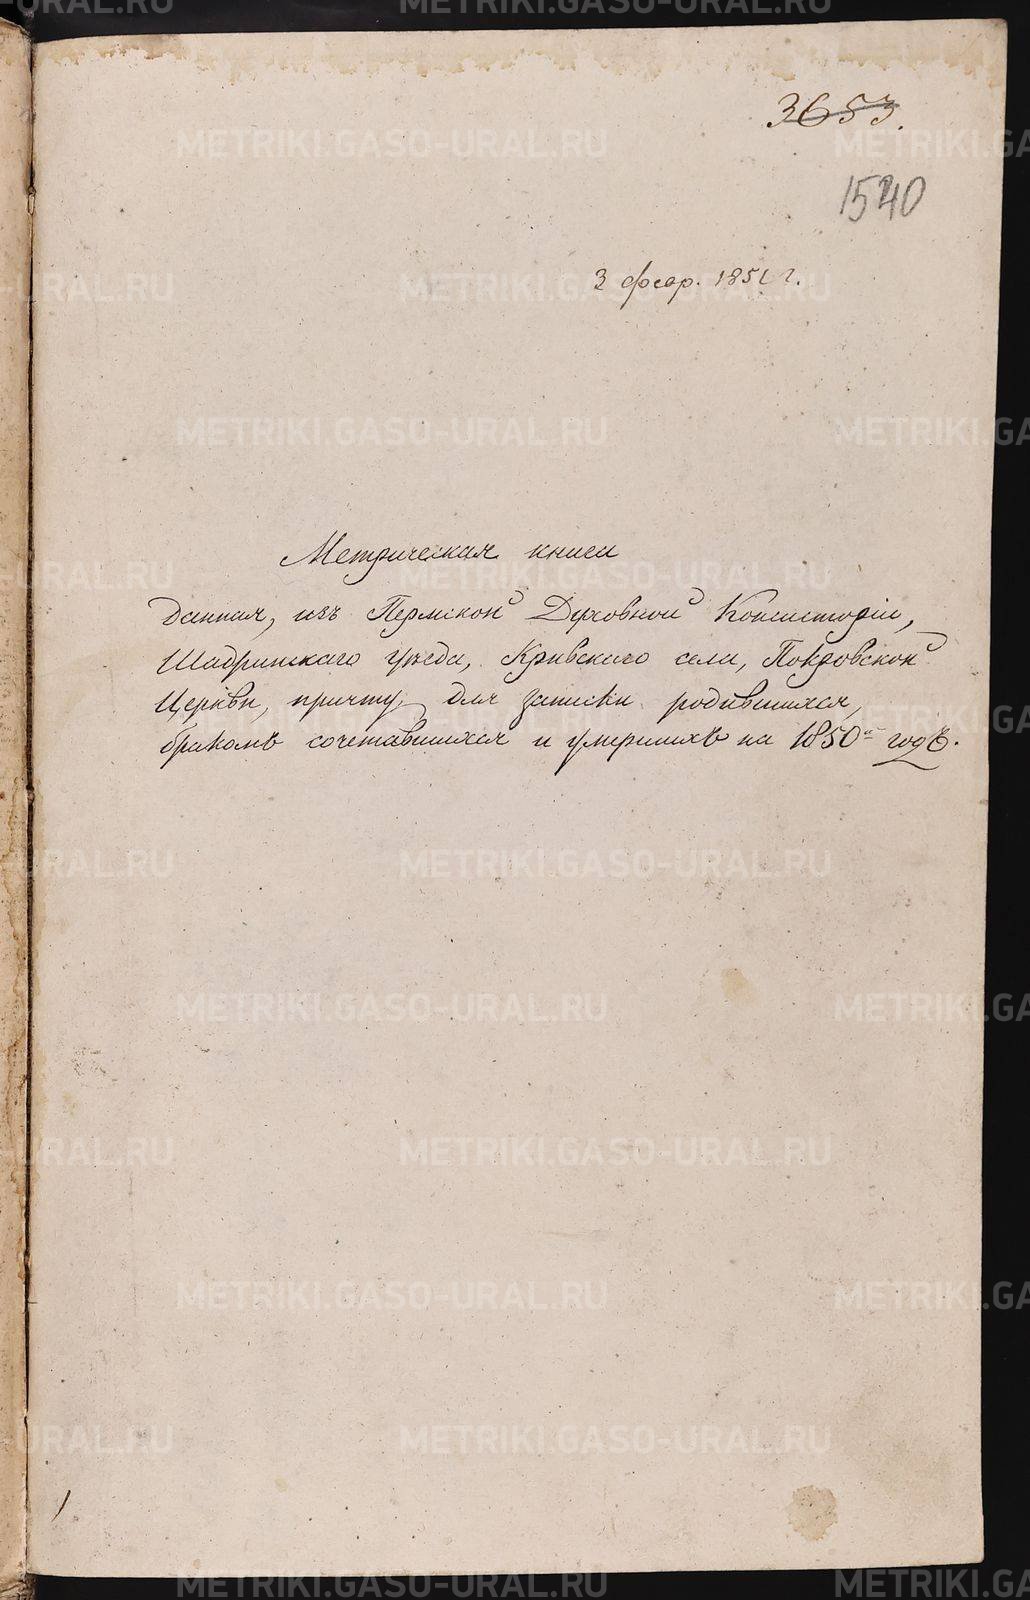 3653.
1540
3 февр. 1851 г.
Метрическая книга
данная, изъ Пермской Духовной Консисторіи,
Шадринскаго уѣзда, Кривскаго села, Покровской
Церкви, причту, для записки родившихся,
бракомъ сочетавшихся и умершихъ на 1850й годъ.
1
METRIKI.GASO-URAL.RU